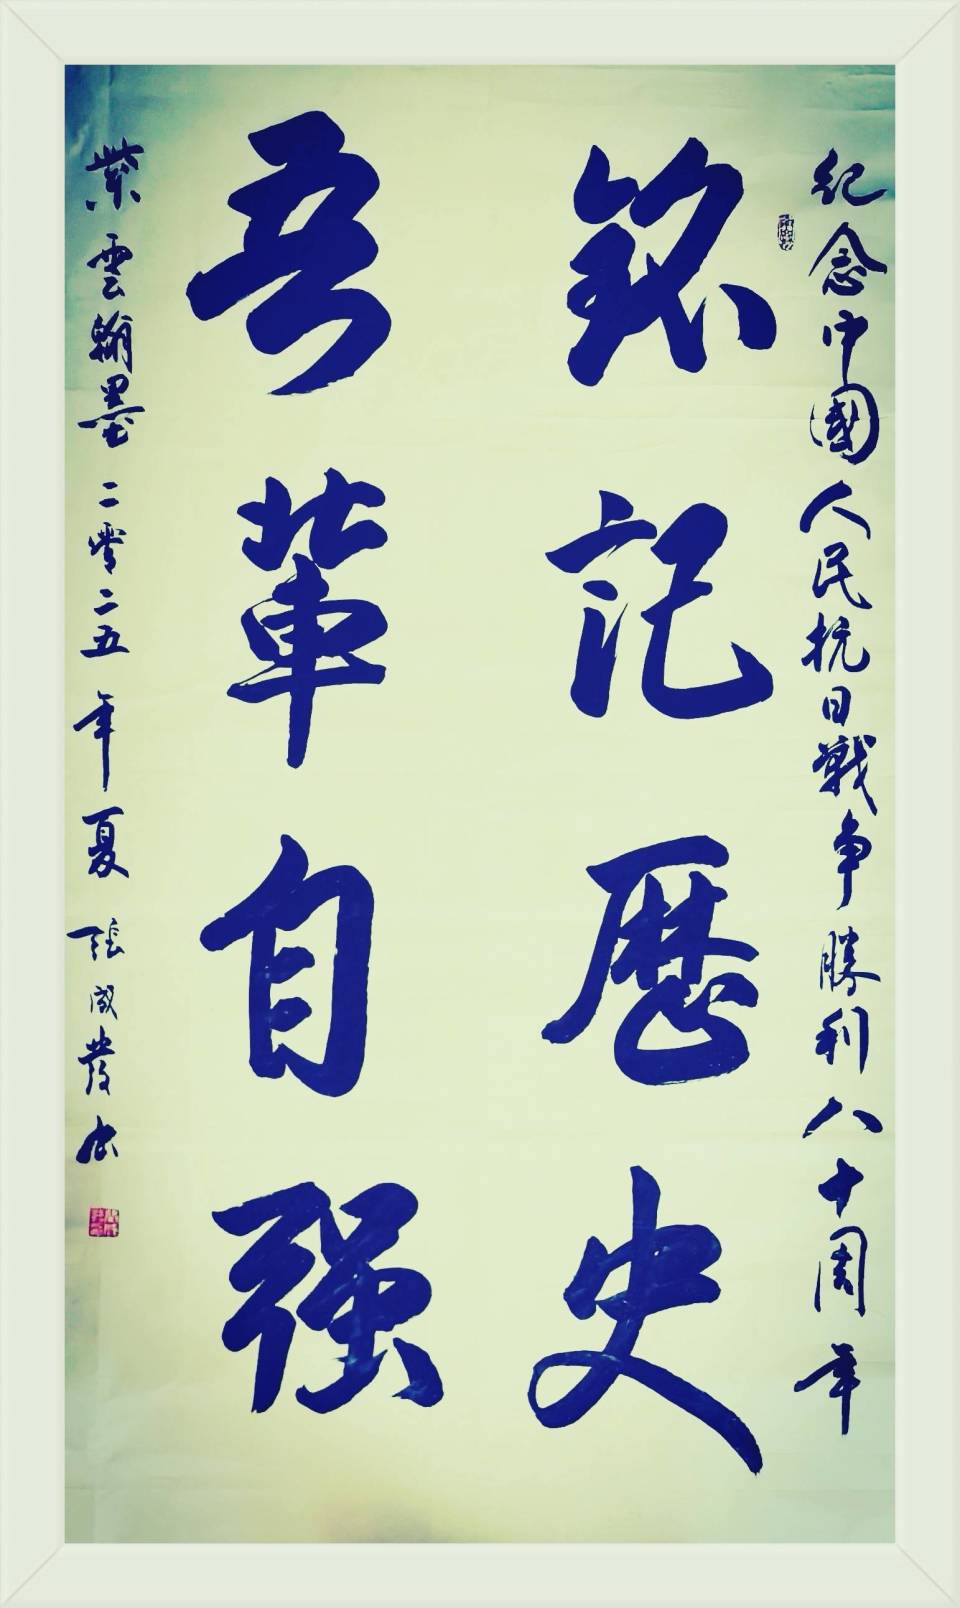 紀念中國人民抗日戰争勝利八十周年
銘記歷史
吾輩自强
紫雲翰墨 二零二五年夏 張成發书